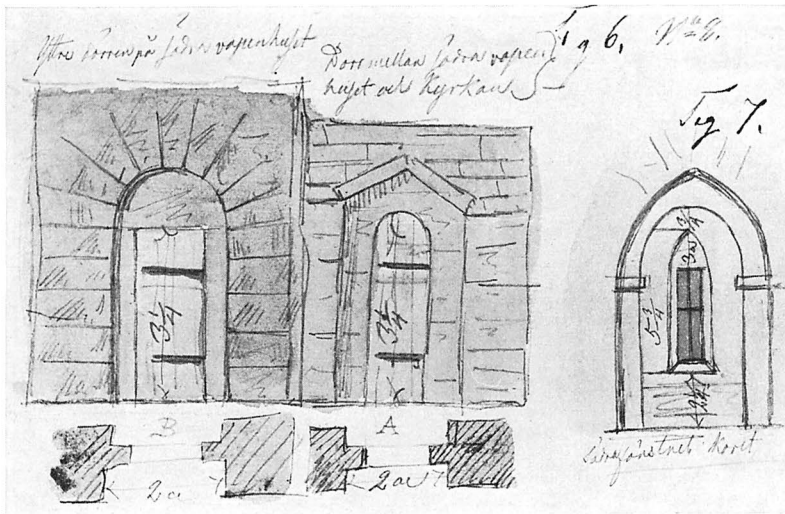 Yttre dörren på Södra vapenhuset
Dörr mellan Södra vapen
huset och Kyrkan
Fig 6.
Fig 7.
3 1/4
3 1/4
3/4
5 1/4
B
A
2 al
2 al
Koret